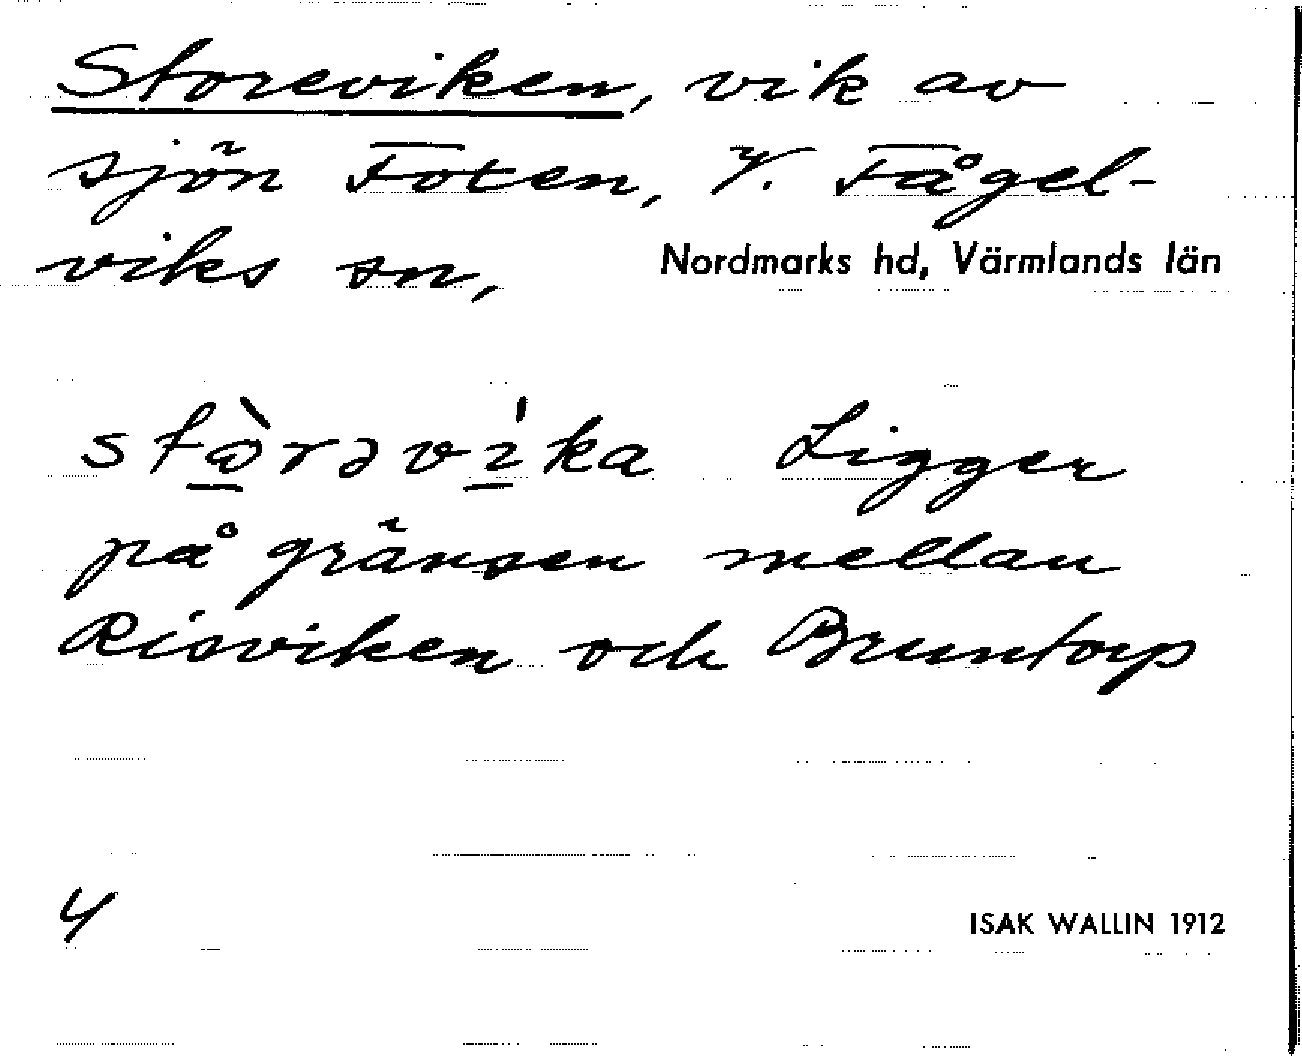 Storeviken, vik av
sjön Foten, V. Fågel-
viks sn,
Nordmarks hd, Värmlands län
Ligger
på gränsen mellan
Risviken och Bruntorp
4
ISAK WALLIN 1912